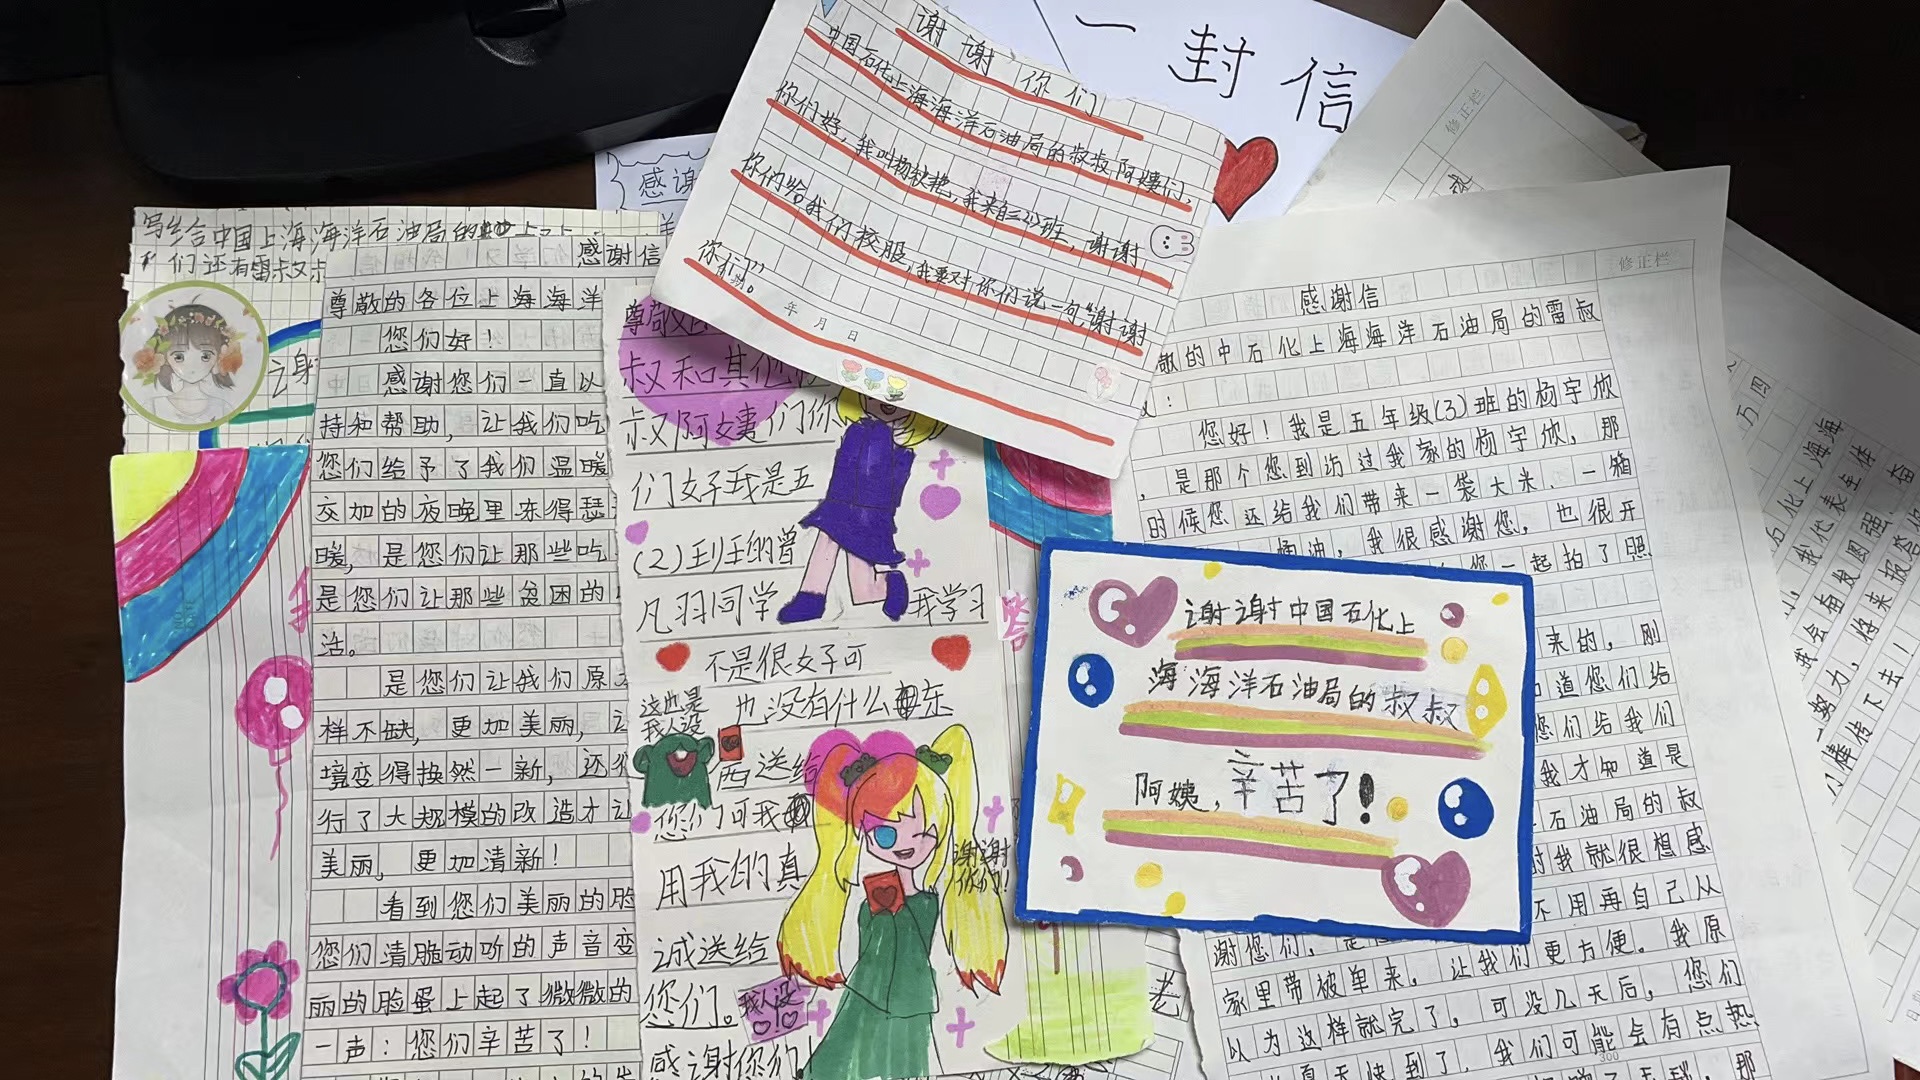 一封信
谢谢你们
中国石化上海海洋石油局的叔叔阿姨们,
你们好,我叫杨
我来自三(2)班,谢谢
你们给我们校服,我要对你们说一句“谢谢
你们”。
年 月 日
感谢
写给中国上海海洋石油局的
们还有雷叔叔
感谢信
尊敬的各位上海海洋
您们好!
感谢您们一直以
持和帮助,让我们吃
您们给予了我们温暖
交加的夜晚里冻得瑟
暖,是您们让那些吃
是您们让那些贫困的
活。
是您们让我们原
样不缺,更加美丽,让
境变得换然一新,还
行了大规模的改造才让
美丽,更加清新!
看到您们美丽的脸
您们清脆动听的声音变
丽的脸蛋上起了微微的
一声:您们辛苦了!
叔和其他
叔阿姨们你
们好我是五
(2)班的曾
凡羽同学
我学习
不是很好可
也没有什么东
这也是
我人设
西送给
您们可我
用我的真
诚送给
您们。
感谢您们!
谢谢
你们!
我人设
谢谢中国石化上
海海洋石油局的叔叔
阿姨,辛苦了!
修正栏
感谢信
敬的中石化上海海洋石油局的雷叔
您好!我是五年级(3)班的杨宇欣
,是那个您到访过我家的杨宇欣,那
时候您还给我们带来一袋大米、一箱
桶油,我很感谢您,也很开
您一起拍了照
来的,刚
道您们给
您们给我们
我才知道是
石油局的叔
时我就很想感
不用再自己从
谢您们,是
家里带被单来,让我们更方便。我原
以为这样就完了,可没几天后,您们
夏天快到了,我们可能会有点热
300
修正栏
石化上海海
我代表全体
我会奋发图强、奋
努力,将来报答
棒传下去!